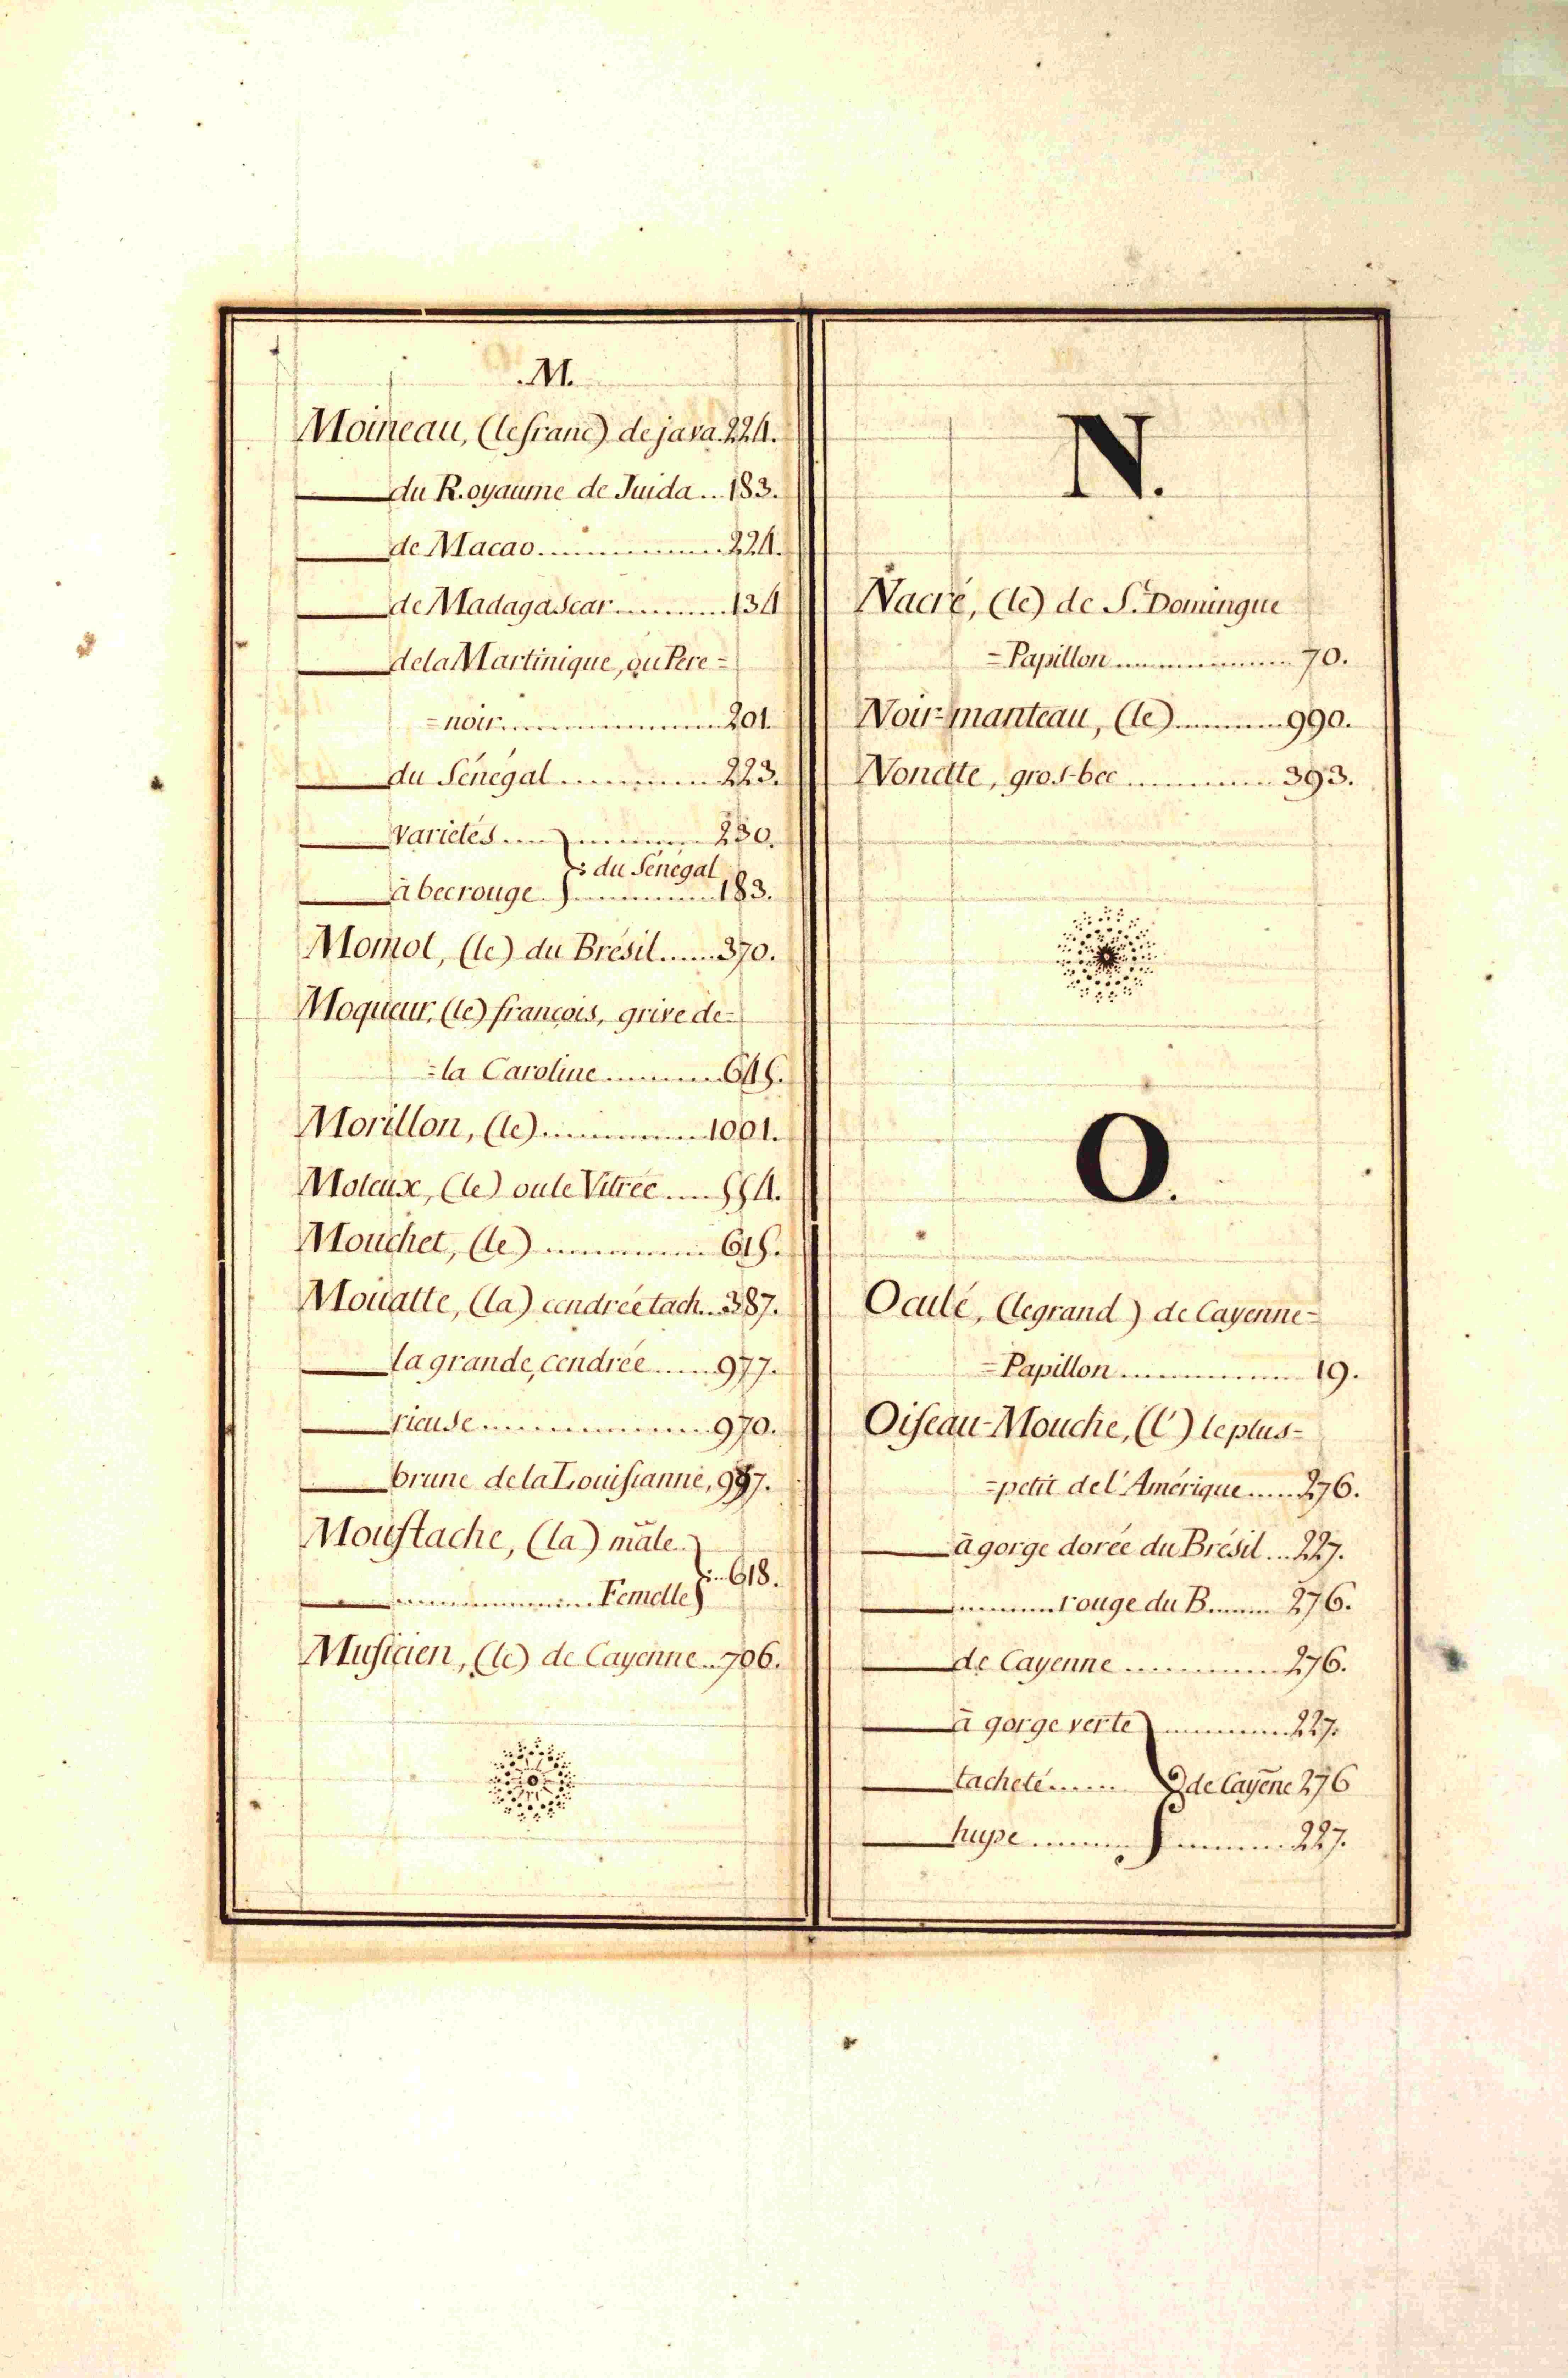 .M.
Moineau, (le franc) de java. 224.
du Royaume de Juida .. 183.
de Macao .............. 224.
de Madagascar .......... 134
de la Martinique, ou Pere =
= noir .................. 201.
du Sénégal ............ 223.
variétés .... ........ 230.
: du Sénégal
à bec rouge ........... 183.
Momot, (le) du Brésil ...... 370.
Moqueur, (le) françois, grive de =
= la Caroline ......... 645.
Morillon, (le) ............ 1001.
Moteux, (le) ou le Vitrec .... 554.
Mouchet, (le) ............ 615.
Mouatte, (la) cendrée tach. .. 387.
la grande, cendrée ...... 977.
rieuse ................ 970.
brune de la Louisianne, 997.
Moustache, (la) mâle ..
: .. 618.
................ Femelle
Musicien, (le) de Cayenne .. 706.
N.
Nacré, (le) de St. Domingue
= Papillon .............. 70.
Noir = manteau, (le) .......... 990.
Nonette, gros-bec ............ 393.
O.
Oculé, (le grand) de Cayenne =
= Papillon .............. 19.
Oiseau-Mouche, (l') le plus =
= petit de l'Amérique ..... 276.
à gorge dorée du Brésil ... 227.
......... rouge du B. ..... 276.
de Cayenne ............ 276.
à gorge verte .......... 227.
tacheté ...... de Cayēne 276
hupe ......... ......... 227.